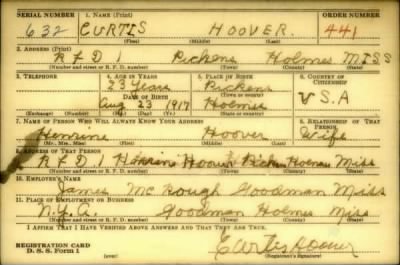 SERIAL NUMBER 1. NAME (Print) ORDER NUMBER
632 CURTIS HOOVER. 441
(First) (Middle) (Last)
2. ADDRESS (Print)
R F D 1 Pickens Holmes MISS
(Number and street or R. F. D. number) (Town) (County) (State)
3. TELEPHONE 4. AGE IN YEARS 5. PLACE OF BIRTH 6. COUNTRY OF CITIZENSHIP
23 Years Pickens
DATE OF BIRTH (Town or county)
Aug 23 1917 Holmes U S A
(Exchange) (Number) (Mo.) (Day) (Yr.) (State or country)
7. NAME OF PERSON WHO WILL ALWAYS KNOW YOUR ADDRESS 8. RELATIONSHIP OF THAT PERSON
Henrine Hoover Wife
(Mr., Mrs., Miss) (First) (Middle) (Last)
9. ADDRESS OF THAT PERSON
R F D 1 Hoover Holmes Miss
(Number and street or R. F. D. number) (Town) (County) (State)
10. EMPLOYER'S NAME
James Mc Rough Goodman Miss
11. PLACE OF EMPLOYMENT OR BUSINESS
N.Y.A. Goodman Holmes Miss
(Number and street or R. F. D. number) (Town) (County) (State)
I AFFIRM THAT I HAVE VERIFIED ABOVE ANSWERS AND THAT THEY ARE TRUE.
REGISTRATION CARD
D. S. S. Form 1 Curtis Hoover
(Registrant's signature)